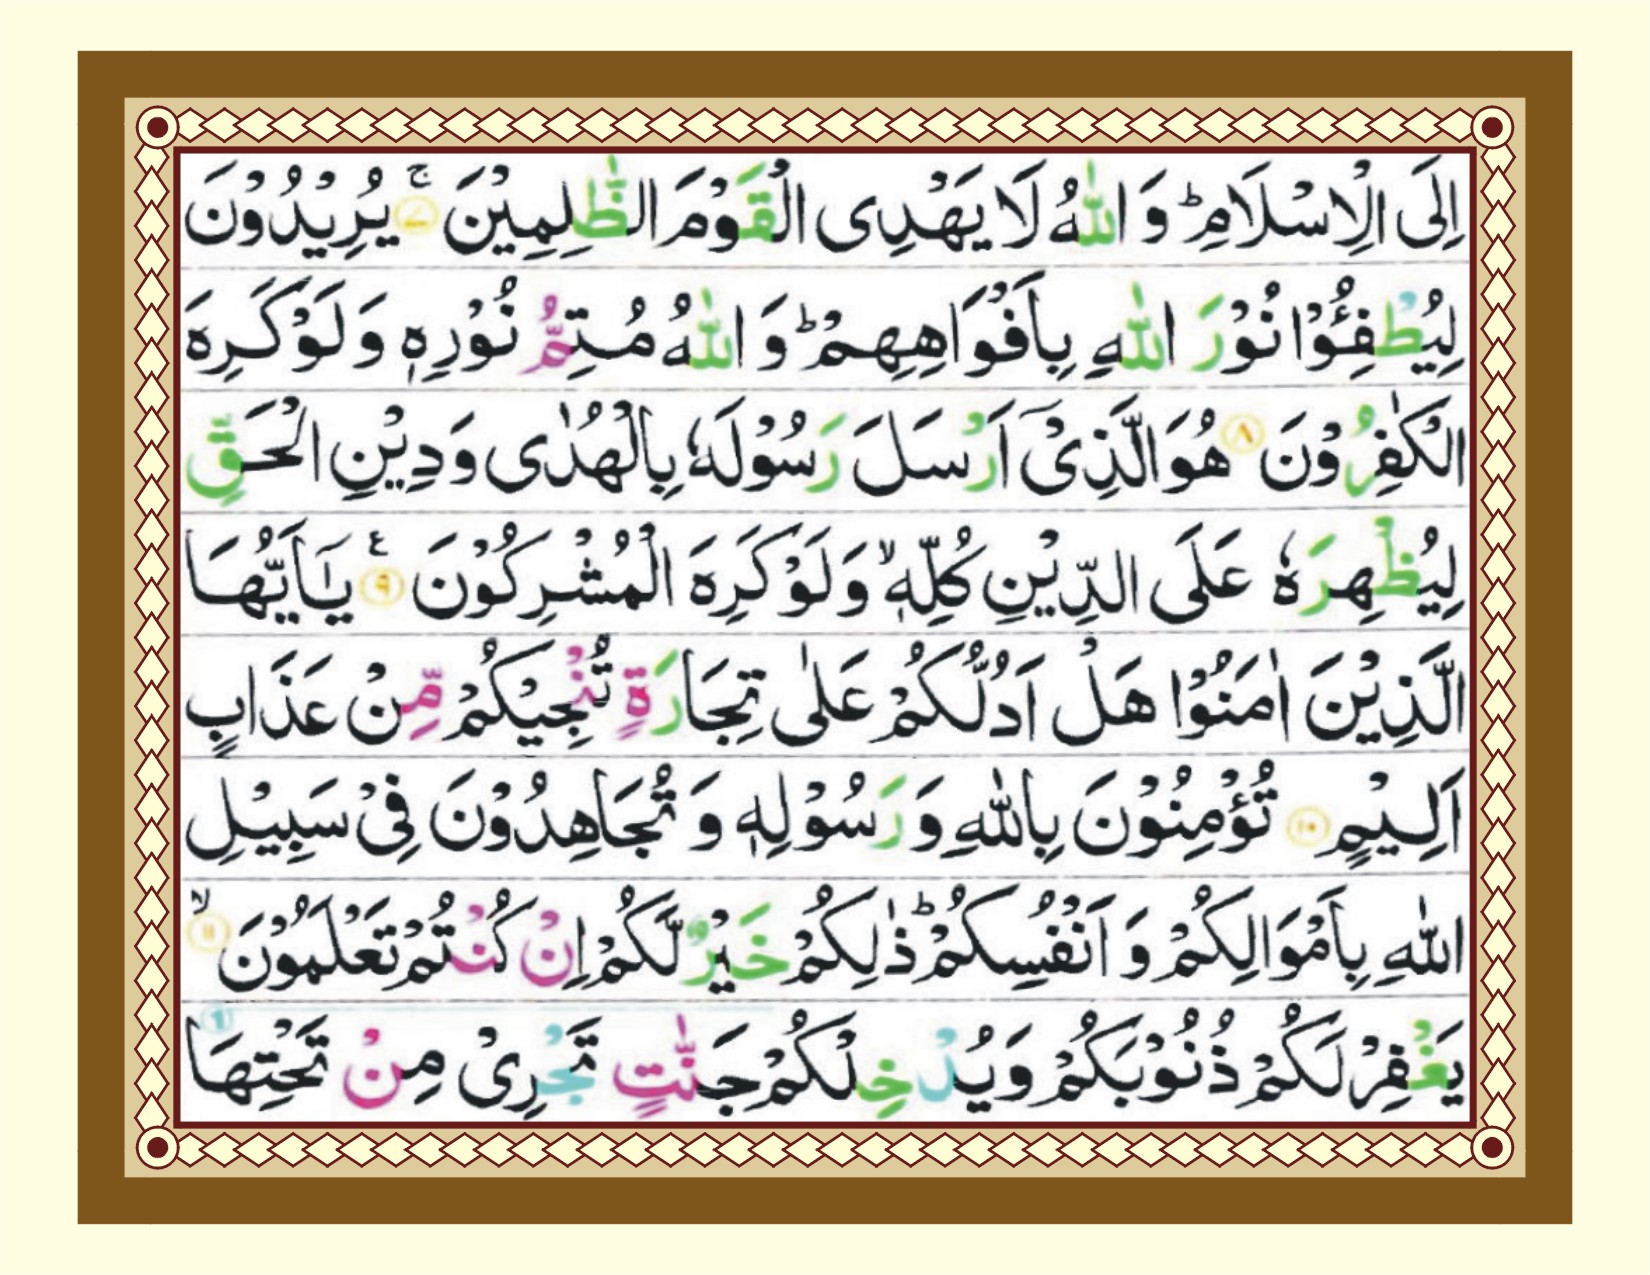 اِلَی الْاِسْلَامِ ؕ وَ اللّٰهُ لَا یَهْدِی الْقَوْمَ الظّٰلِمِیْنَ ۚ ﴿۷﴾ یُرِیْدُوْنَ
لِیُطْفِـُٔوْا نُوْرَ اللّٰهِ بِاَفْوَاهِهِمْ ؕ وَ اللّٰهُ مُتِمُّ نُوْرِهٖ وَ لَوْ كَرِهَ
الْكٰفِرُوْنَ ﴿۸﴾ هُوَ الَّذِیْۤ اَرْسَلَ رَسُوْلَهٗ بِالْهُدٰی وَ دِیْنِ الْحَقِّ
لِیُظْهِرَهٗ عَلَی الدِّیْنِ كُلِّهٖ ۙ وَ لَوْ كَرِهَ الْمُشْرِكُوْنَ ﴿۹﴾ ع یٰۤاَیُّهَا
الَّذِیْنَ اٰمَنُوْا هَلْ اَدُلُّكُمْ عَلٰی تِجَارَةٍ تُنْجِیْكُمْ مِّنْ عَذَابٍ
اَلِیْمٍ ﴿۱۰﴾ تُؤْمِنُوْنَ بِاللّٰهِ وَ رَسُوْلِهٖ وَ تُجَاهِدُوْنَ فِیْ سَبِیْلِ
اللّٰهِ بِاَمْوَالِكُمْ وَ اَنْفُسِكُمْ ؕ ذٰلِكُمْ خَیْرٌ لَّكُمْ اِنْ كُنْتُمْ تَعْلَمُوْنَ ۙ ﴿۱۱﴾
یَغْفِرْ لَكُمْ ذُنُوْبَكُمْ وَ یُدْخِلْكُمْ جَنّٰتٍ تَجْرِیْ مِنْ تَحْتِهَا